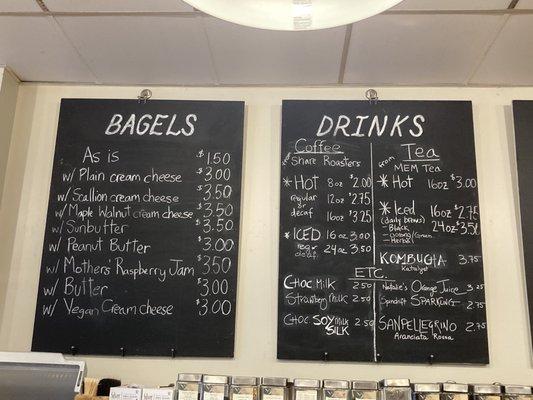 BAGELS
As is $1.50
w/ Plain cream cheese $3.00
w/ Scallion cream cheese $3.50
w/ Maple Walnut cream cheese $3.50
w/ Sunbutter $3.50
w/ Peanut Butter $3.00
w/ Mothers' Raspberry Jam $3.50
w/ Butter $3.00
w/ Vegan Cream cheese $3.00
DRINKS
Coffee
from Share Roasters
* Hot 8oz $2.00
regular or decaf 12oz $2.75
16oz $3.25
* ICED 16oz 3.00
reg or decaf 24oz 3.50
Tea
from MEM Tea
* Hot 16oz $3.00
* Iced 16oz $2.75
(daily brews) 24oz $3.50
- Black
- Herbal
KOMBUCHA 3.75
Katalyst
ETC.
Choc Milk 2.50
Strawberry Milk 2.50
Choc SOY Milk 2.50
SILK
Natalie's Orange Juice 3.25
Spindrift SPARKLING 2.75
SANPELLEGRINO 2.75
Aranciata Rossa